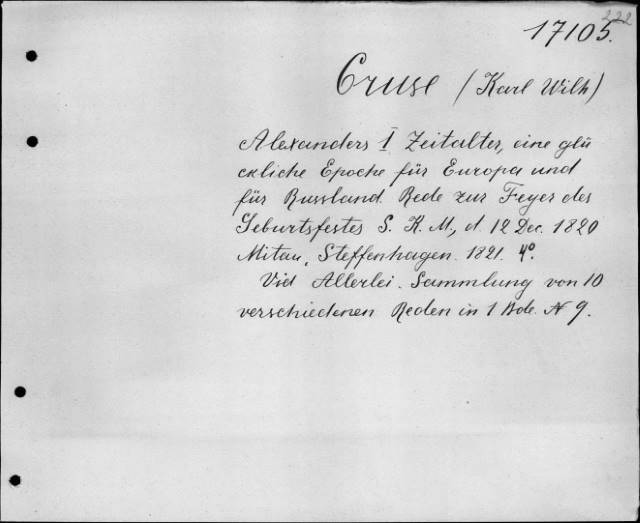 222
17105.
Cruse (Karl Wilh)
Alexanders I Zeitalter, eine glü
ckliche Epoche für Europa und
für Russland. Rede zur Feyer des
Geburtsfestes S. K. M., d. 12 Dec. 1820
Mitau, Steffenhagen. 1821. 4º.
Vid Allerlei. Sammlung von 10
verschiedenen Reden in 1 Bde. N 9.